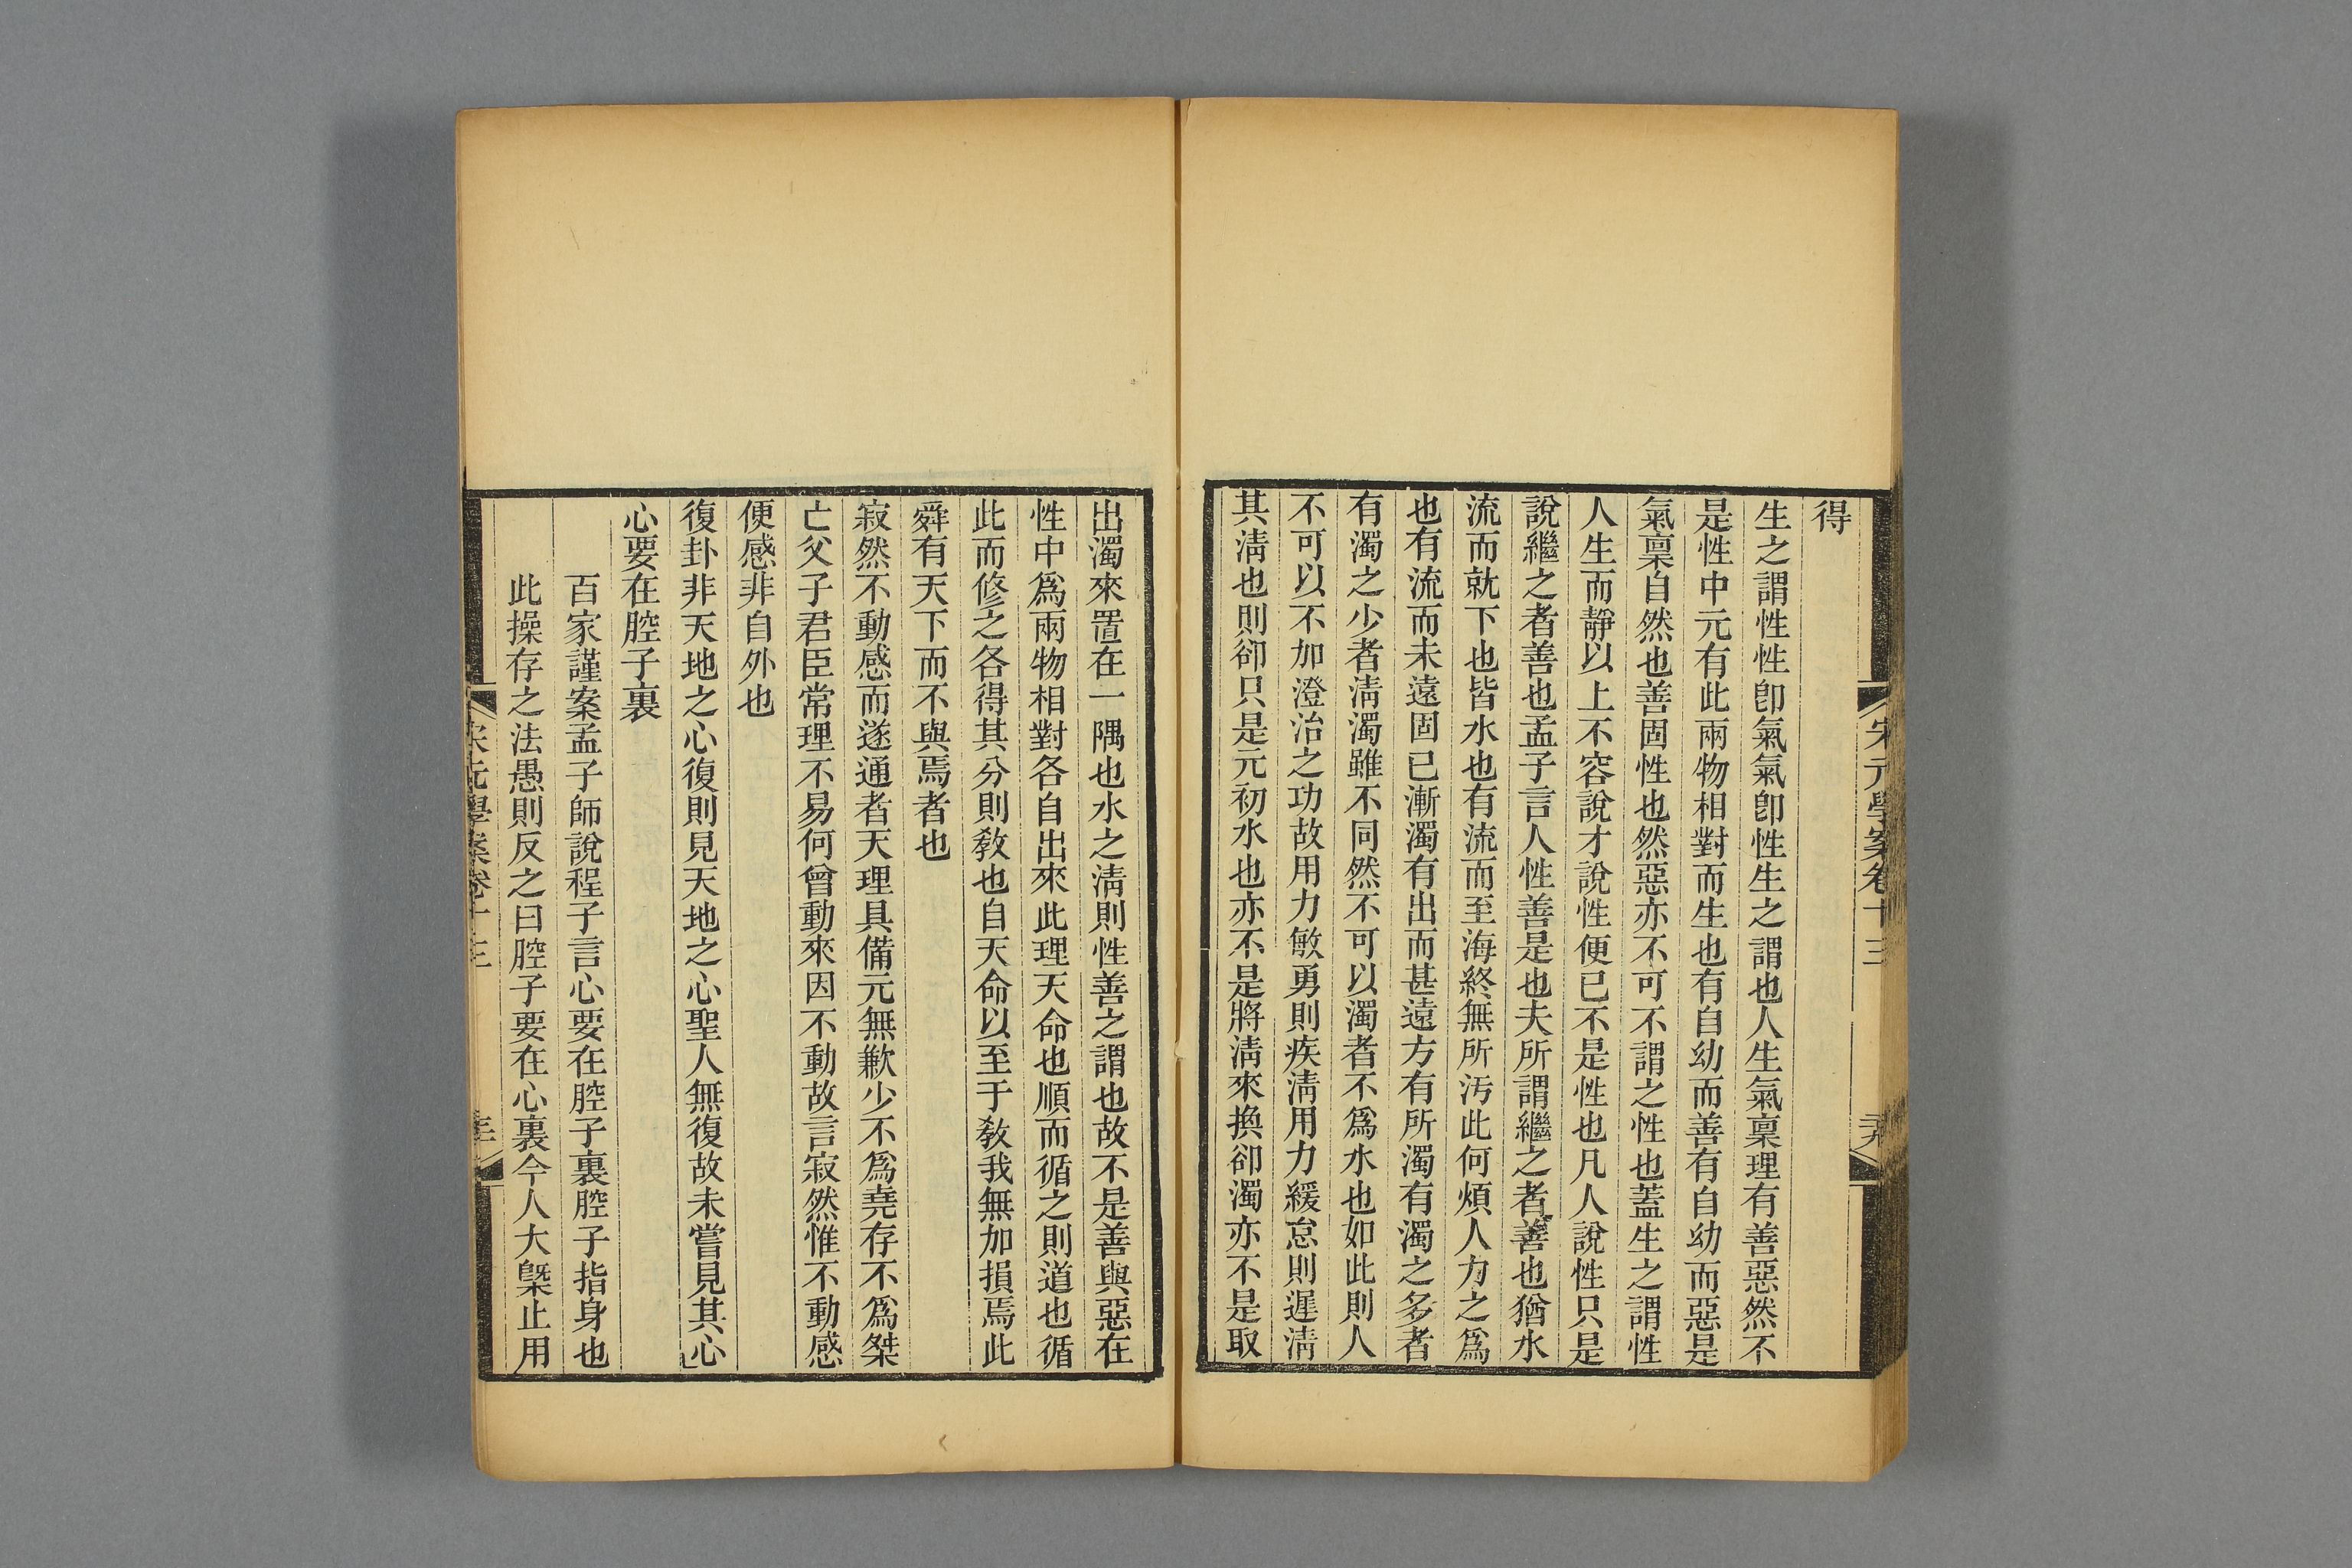 宋元學案卷十三
得
生之謂性性卽氣氣卽性生之謂也人生氣稟理有善惡然不
是性中元有此兩物相對而生也有自幼而善有自幼而惡是
氣稟自然也善固性也然惡亦不可不謂之性也蓋生之謂性
人生而靜以上不容說才說性便已不是性也凡人說性只是
說繼之者善也孟子言人性善是也夫所謂繼之者善也猶水
流而就下也皆水也有流而至海終無所汚此何煩人力之爲
也有流而未遠固已漸濁有出而甚遠方有所濁有濁之多者
有濁之少者淸濁雖不同然不可以濁者不爲水也如此則人
不可以不加澄治之功故用力敏勇則疾淸用力緩怠則遲淸
其淸也則卻只是元初水也亦不是將淸來換卻濁亦不是取
出濁來置在一隅也水之淸則性善之謂也故不是善與惡在
性中爲兩物相對各自出來此理天命也順而循之則道也循
此而修之各得其分則敎也自天命以至于敎我無加損焉此
舜有天下而不與焉者也
寂然不動感而遂通者天理具備元無歉少不爲堯存不爲桀
亡父子君臣常理不易何曾動來因不動故言寂然惟不動感
便感非自外也
復卦非天地之心復則見天地之心聖人無復故未嘗見其心
心要在腔子裏
百家謹案孟子師說程子言心要在腔子裏腔子指身也
此操存之法愚則反之曰腔子要在心裏今人大槩止用
宋元學案卷十三